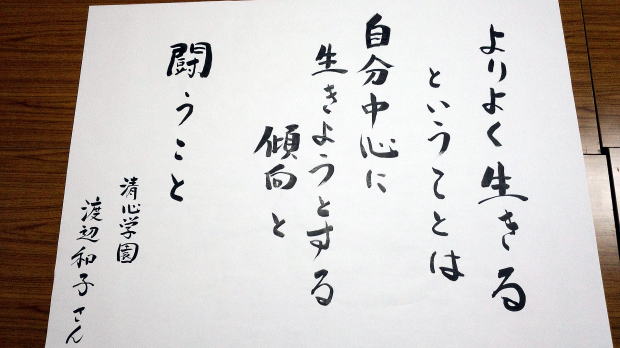 よりよく生きる
ということは
自分中心に
生きようとする
傾向と
闘うこと
清心学園
渡辺和子さん